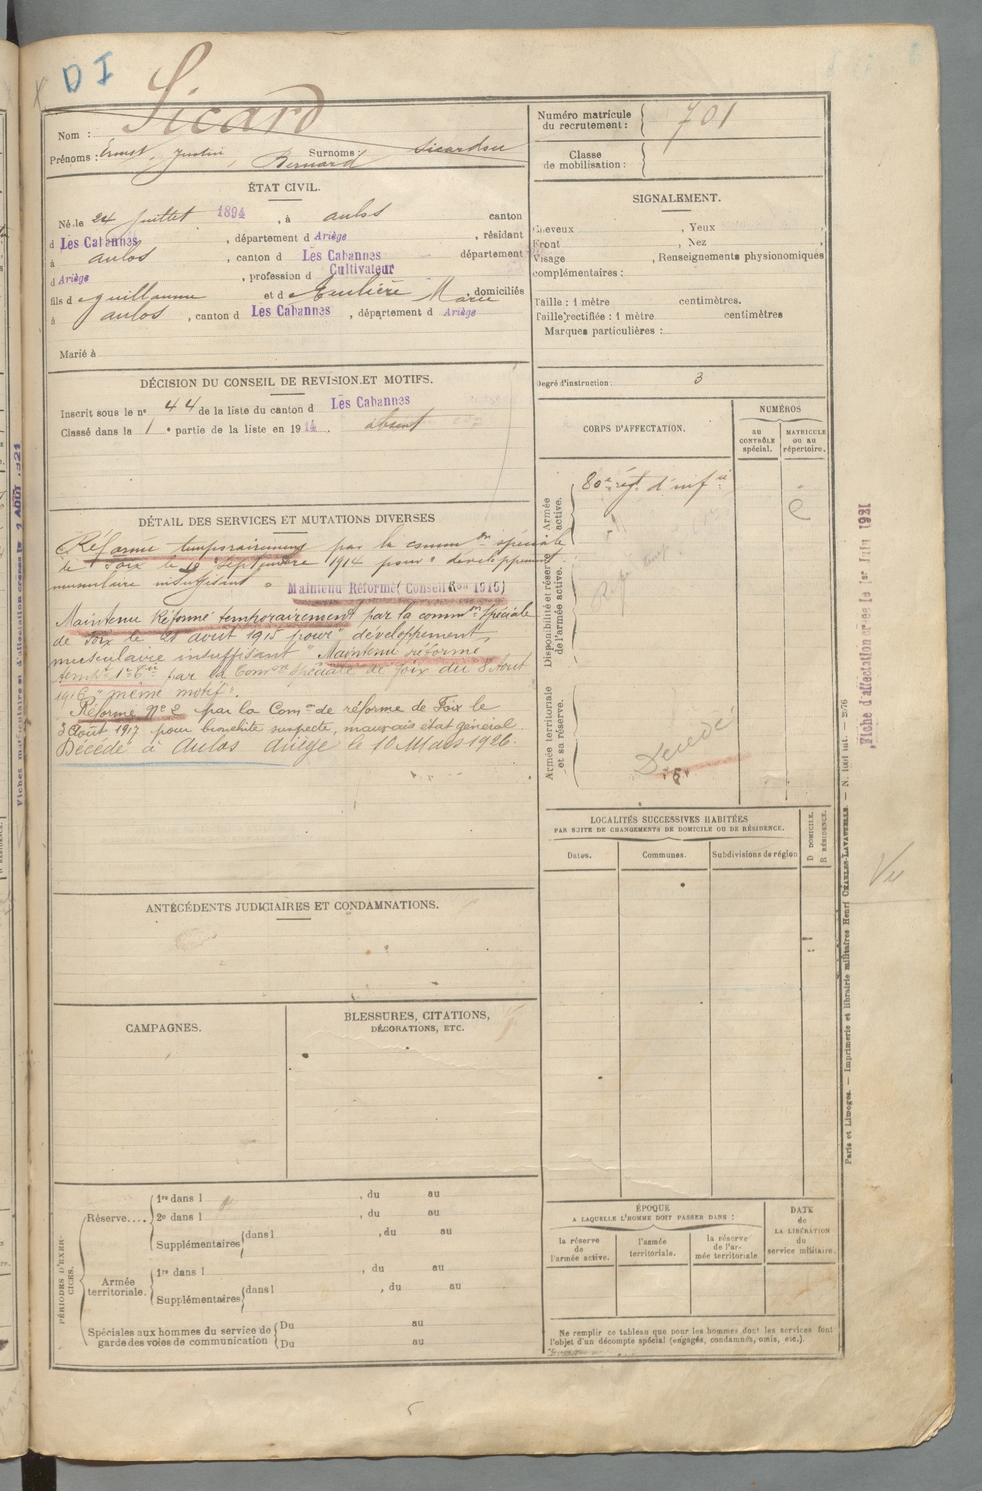 D I
Sicard
Nom :
Prénoms : Ernest, Justin, Bernard Surnoms : Sicardou
Numéro matricule
du recrutement : 701
Classe
de mobilisation :
ÉTAT CIVIL.
Né le 24 Juillet 1894, à aulos canton
d Les Cabannes, département d Ariège, résidant
à aulos, canton d Les Cabannes département
d Ariège, profession d Cultivateur
fils de Guillaume et de Eulière Marie, domiciliés
à aulos, canton d Les Cabannes, département d Ariège
Marié à
SIGNALEMENT.
Cheveux , Yeux ,
Front , Nez ,
Visage , Renseignements physionomiques
complémentaires :
Taille : 1 mètre centimètres.
Taille rectifiée : 1 mètre centimètres
Marques particulières :
Degré d'instruction : 3
DÉCISION DU CONSEIL DE REVISION ET MOTIFS.
Inscrit sous le n° 44 de la liste du canton d Les Cabannes
Classé dans la 1e partie de la liste en 1914. absent
CORPS D'AFFECTATION.
NUMÉROS
AU
CONTRÔLE
spécial.
MATRICULE
OU AU
répertoire.
Armée
active.
80e régt d'infie
Disponibilité et réserve
de l'armée active.
Armée territoriale
et sa réserve.
Décédé
DÉTAIL DES SERVICES ET MUTATIONS DIVERSES
Réformé temporairement par la common spéciale
de Foix le 19 Septembre 1914 pour "développement
musculaire insuffisant"
Maintenu Réformé (Conseil Ron 1915)
Maintenu Réformé temporairement par la common Spéciale
de Foix le 21 août 1915 pour "développement
musculaire insuffisant" Maintenu réformé
tempt par la Comon Spéciale de Foix du 8 Aout
1916 "même motif".
Réformé N° 2 par la Comon de réforme de Foix le
3 Août 1917 pour bronchite suspecte, mauvais état général.
Décédé à Aulos Ariège le 10 Mars 1926.
LOCALITÉS SUCCESSIVES HABITÉES
PAR SUITE DE CHANGEMENTS DE DOMICILE OU DE RÉSIDENCE.
Dates.
Communes.
Subdivisions de région
D DOMICILE.
R RÉSIDENCE.
ANTÉCÉDENTS JUDICIAIRES ET CONDAMNATIONS.
CAMPAGNES.
BLESSURES, CITATIONS,
DÉCORATIONS, ETC.
PÉRIODES D'EXER-
CICES.
Réserve....
1re dans l , du au
2e dans l , du au
Supplémentaires dans l , du au
Armée
territoriale.
1re dans l , du au
Supplémentaires dans l , du au
Spéciales aux hommes du service de
garde des voies de communication
Du au
Du au
ÉPOQUE
A LAQUELLE L'HOMME DOIT PASSER DANS :
la réserve
de
l'armée active.
l'armée
territoriale.
la réserve
de l'ar-
mée territoriale
DATE
de
LA LIBÉRATION
du
service militaire.
Ne remplir ce tableau que pour les hommes dont les services font
l'objet d'un décompte spécial (engagés, condamnés, omis, etc.).
Paris et Limoges. — Imprimerie et librairie militaires Henri CHARLES-LAVAUZELLE.
Fiche d'affectation créée le 1er Juin 1921
Vu